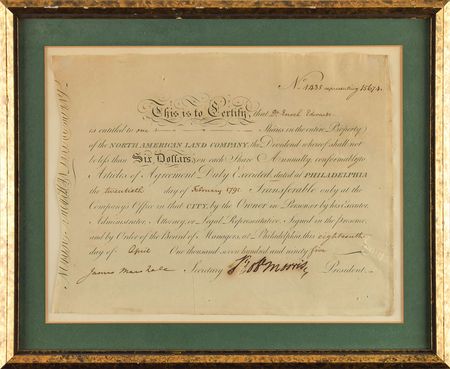 No. 1435 representing 15674.
This is to Certify, that Dr. Enoch Edwards
is entitled to one Shares in the entire Property
of the NORTH AMERICAN LAND COMPANY; the Dividend whereof shall not
be less than Six Dollars, on each Share Annually, conformably to
Articles of Agreement Duly Executed; dated at PHILADELPHIA
the twentieth day of February 1795 Transferable only at the
Company's Office in that CITY, by the Owner in Person or by his Executor,
Administrator, Attorney, or Legal Representative. Signed in the presence,
and by Order of the Board of Managers, at Philadelphia, this eighteenth
day of April One thousand seven hundred and ninety five
James Marshall Secretary Robt Morris President.